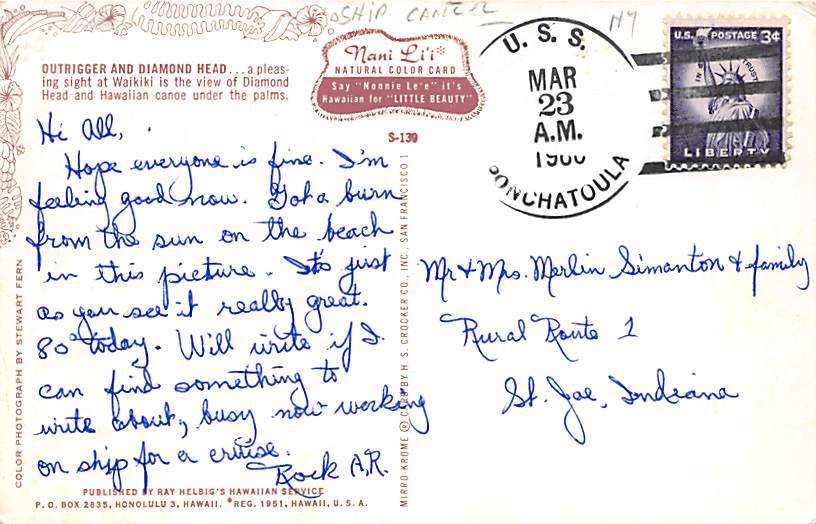 SHIP CANCEL
Nani Li'i*
NATURAL COLOR CARD
Say "Nonnie Le'e" it's
Hawaiian for "LITTLE BEAUTY"
OUTRIGGER AND DIAMOND HEAD...a pleas-
ing sight at Waikiki is the view of Diamond
Head and Hawaiian canoe under the palms.
S-139
U. S. S.
MAR
23
A.M.
PONCHATOULA
U.S. POSTAGE 3¢
IN
TRUST
LIBERTY
Hi All,
Hope everyone is fine. I'm
feeling good now. Got a burn
from the sun on the beach
in this picture. Its just
as you see it really great.
80° today. Will write if I
can find something to
write about, busy now working
on ship for a cruise.
Rock A.R.
Mr & Mrs. Merlin Simanton & family
Rural Route 1
St. Joe, Indiana
COLOR PHOTOGRAPH BY STEWART FERN
MIRRO KROME ® CARD BY H. S. CROCKER CO., INC., SAN FRANCISCO 1
PUBLISHED BY RAY HELBIG'S HAWAIIAN SERVICE
P. O. BOX 2835, HONOLULU 3, HAWAII. *REG. 1951, HAWAII, U. S. A.